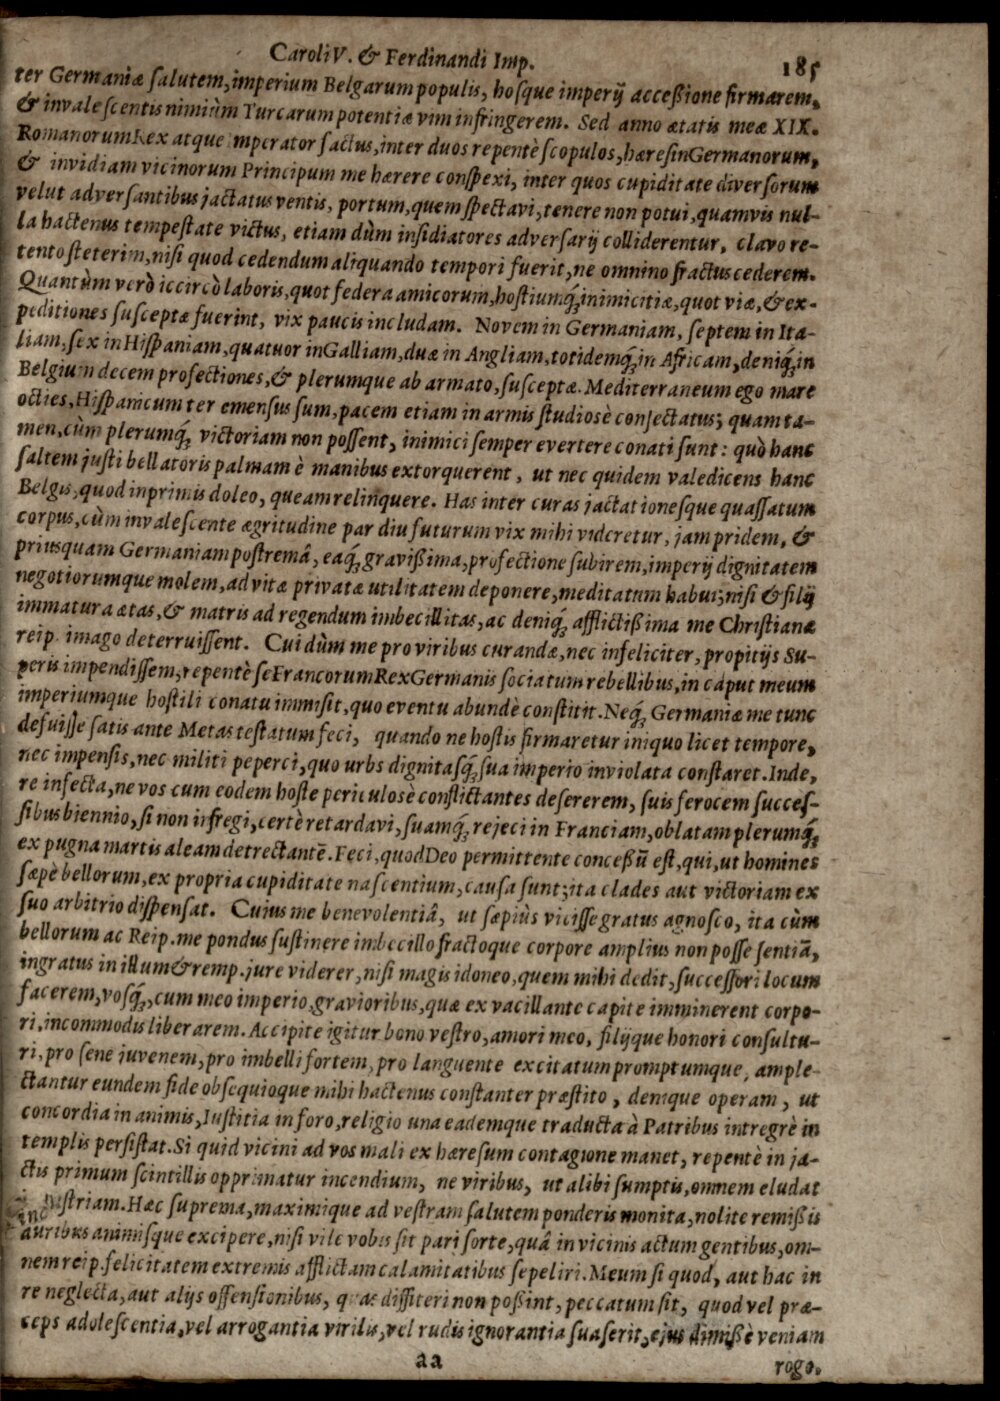 Caroli V. & Ferdinandi Imp. 185
ter Germaniæ salutem, imperium Belgarum populis, hosque imperij acceßione firmarem,
& invalescentis nimiùm Turcarum potentiæ vim infringerem. Sed anno ætatis meæ XIX.
Romanorum Rex atque imperator factus, inter duos repentè scopulos, hæresin Germanorum,
& invidiam vicinorum Principum me hærere conspexi, inter quos cupiditate diversorum
velut adversantibus jactatus ventis, portum, quem spectavi, tenere non potui, quamvis nul-
la hactenus tempestate victus, etiam dùm insidiatores adversarij colliderentur, clavo re-
tento steterim, nisi quod cedendum aliquando tempori fuerit, ne omnino fractus cederem.
Quantùm verò iccircò laboris, quot federa amicorum, hostiumq́; inimicitiæ, quot viæ, & ex-
peditiones susceptæ fuerint, vix paucis includam. Novem in Germaniam, septem in Ita-
liam, sex in Hispaniam, quatuor in Galliam, duæ in Angliam, totidemq́; in Africam, deniq́; in
Belgium decem profectiones, & plerumque ab armato, susceptæ. Mediterraneum ego mare
octies, Hispanicum ter emensus sum, pacem etiam in armis studiosè consectatus; quam ta-
men, cùm plerumq́; victoriam non possent, inimici semper evertere conati sunt: quò hanc
saltem justi bellatoris palmam è manibus extorquerent, ut nec quidem valedicens hanc
Belgis, quod inprimis doleo, queam relinquere. Has inter curas jactationesque quassatum
corpus, cùm invalescente ægritudine par diu futurum vix mihi videretur, jam pridem, &
priusquam Germaniam postremâ, eaq́; gravißima, profectione subirem, imperij dignitatem
negotiorumque molem, ad vitæ privatæ utilitatem deponere, meditatum habui; nisi & filij
immatura ætas, & matris ad regendum imbecillitas, ac deniq́; afflictißima me Christianæ
reip. imago deterruissent. Cui dùm me pro viribus curandæ, nec infeliciter, propitijs Su-
peris impendissem, repentè se Francorum Rex Germanis sociatum rebellibus, in caput meum
imperiumque hostili conatu immisit, quo eventu abundè constitit. Neq́; Germaniæ me tunc
defuisse satis ante Metas testatum feci, quando ne hostis firmaretur iniquo licet tempore,
nec impensis, nec militi peperci, quo urbs dignitasq́; sua imperio inviolata constaret. Inde,
re infecta, ne vos cum eodem hoste periculosè conflictantes desererem, suis ferocem succes-
sibus biennio, si non infregi, certè retardavi, suamq́; rejeci in Franciam, oblatam plerumq́;
ex pugna martis aleam detrectantē. Feci, quod Deo permittente conceßū est, qui, ut homines
sæpè bellorum, ex propria cupiditate nascentium, causa sunt; ita clades aut victoriam ex
suo arbitrio dispensat. Cuius me benevolentiâ, ut sæpiùs vicisse gratus agnosco, ita cùm
bellorum ac Reip. me pondus sustinere imbecillo fractoque corpore amplius non posse sentiā,
ingratus in illum & remp. jure viderer, nisi magis idoneo, quem mihi dedit, successori locum
facerem, vosq́;, cum meo imperio, gravioribus, quæ ex vacillante capite imminerent corpo-
ri, incommodis liberarem. Accipite igitur bono vestro, amori meo, filijque honori consultu-
ri, pro sene juvenem, pro imbelli fortem, pro languente excitatum promptumque, ample-
ctantur eundem fide obsequioque mihi hactenus constanter præstito, denique operam, ut
concordia in animis, Iustitia in foro, religio una eademque traducta à Patribus intregrè in
templis persistat. Si quid vicini ad vos mali ex hæresum contagione manet, repentè in ja-
ctis primum scintillis opprimatur incendium, ne viribus, ut alibi sumptis, omnem eludat
industriam. Hæc suprema, maximique ad vestram salutem ponderis monita, nolite remißis
auribus animisque excipere, nisi vile vobis sit pari sorte, quâ in vicinis actum gentibus, om-
nem reip. felicitatem extremis afflictam calamitatibus sepeliri. Meum si quod, aut hac in
re neglecta, aut alijs offensionibus, quas diffiteri non poßint, peccatum sit, quod vel præ-
ceps adolescentia, vel arrogantia virilis, vel rudis ignorantia suaserit, ejus dimißè veniam
aa rogo.